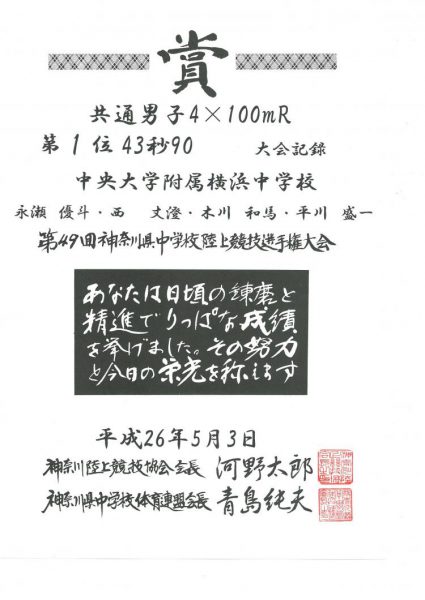 賞
共通男子4×100mR
第1位 43秒90 大会記録
中央大学附属横浜中学校
永瀬 優斗・西 丈澄・木川 和馬・平川 盛一
第49回神奈川県中学校陸上競技選手権大会
あなたは日頃の錬磨と
精進でりっぱな成績
を挙げました。その努力
と今日の栄光を称えます
平成26年5月3日
神奈川陸上競技協会会長 河野太郎
神奈川県中学校体育連盟会長 青島純夫